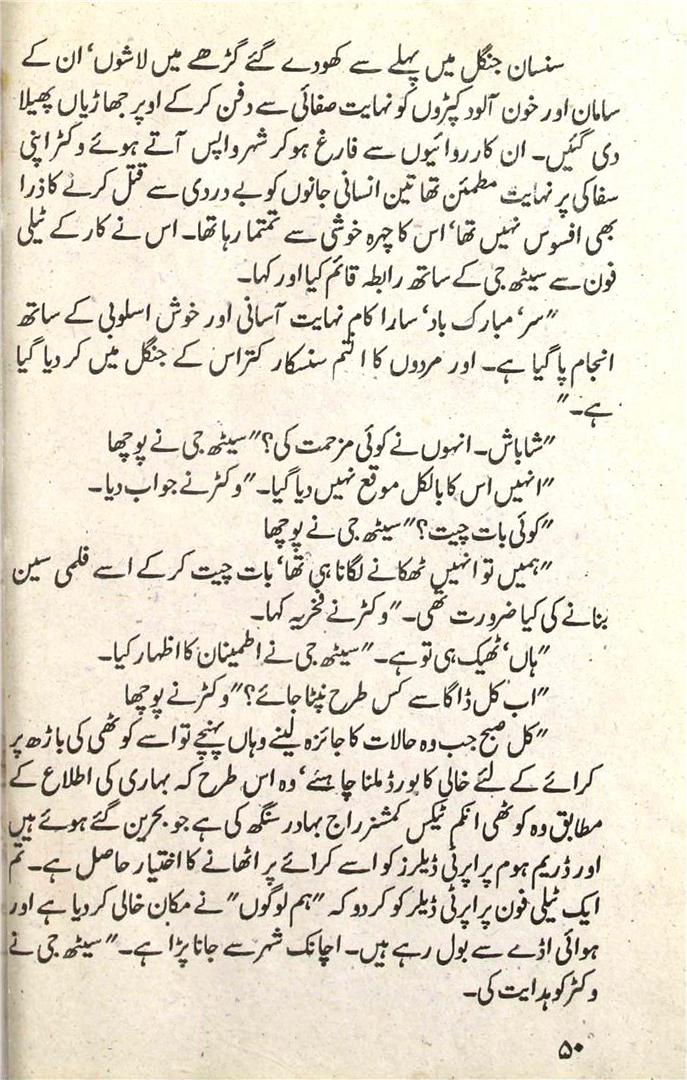 سنسان جنگل میں پہلے سے کھودے گئے گڑھے میں لاشوں، ان کے
سامان اور خون آلود کپڑوں کو نہایت صفائی سے دفن کر کے اوپر جھاڑیاں پھیلا
دی گئیں۔ ان کارروائیوں سے فارغ ہو کر شہر واپس آتے ہوئے وکٹر اپنی
سفاکی پر نہایت مطمئن تھا تین انسانی جانوں کو بے دردی سے قتل کرنے کا ذرا
بھی افسوس نہیں تھا، اس کا چہرہ خوشی سے تمتما رہا تھا۔ اس نے کار کے ٹیلی
فون سے سیٹھ جی کے ساتھ رابطہ قائم کیا اور کہا۔
"سر، مبارک باد، سارا کام نہایت آسانی اور خوش اسلوبی کے ساتھ
انجام پا گیا ہے۔ اور مردوں کا انتم سنسکار کتراس کے جنگل میں کر دیا گیا
ہے۔"
"شاباش۔ انہوں نے کوئی مزحمت کی؟" سیٹھ جی نے پوچھا
"انہیں اس کا بالکل موقع نہیں دیا گیا۔" وکٹر نے جواب دیا۔
"کوئی بات چیت؟" سیٹھ جی نے پوچھا
"ہمیں تو انہیں ٹھکانے لگانا ہی تھا، بات چیت کر کے اسے فلمی سین
بنانے کی کیا ضرورت تھی۔" وکٹر نے فخریہ کہا۔
"ہاں، ٹھیک ہی تو ہے۔" سیٹھ جی نے اطمینان کا اظہار کیا۔
"اب کل ڈاگا سے کس طرح نپٹا جائے؟" وکٹر نے پوچھا
"کل صبح جب وہ حالات کا جائزہ لینے وہاں پہنچے تو اسے کوٹھی کی باڑھ پر
کرائے کے لئے خالی کا بورڈ ملنا چاہئے، وہ اس طرح کہ بہاری کی اطلاع کے
مطابق وہ کوٹھی انکم ٹیکس کمشنر راج بہادر سنگھ کی ہے جو بحرین گئے ہوئے ہیں
اور ڈریم ہوم پراپرٹی ڈیلرز کو اسے کرائے پر اٹھانے کا اختیار حاصل ہے۔ تم
ایک ٹیلی فون پراپرٹی ڈیلر کو کر دو کہ "ہم لوگوں" نے مکان خالی کر دیا ہے اور
ہوائی اڈے سے بول رہے ہیں۔ اچانک شہر سے جانا پڑا ہے۔" سیٹھ جی نے
وکٹر کو ہدایت کی۔
۵۰